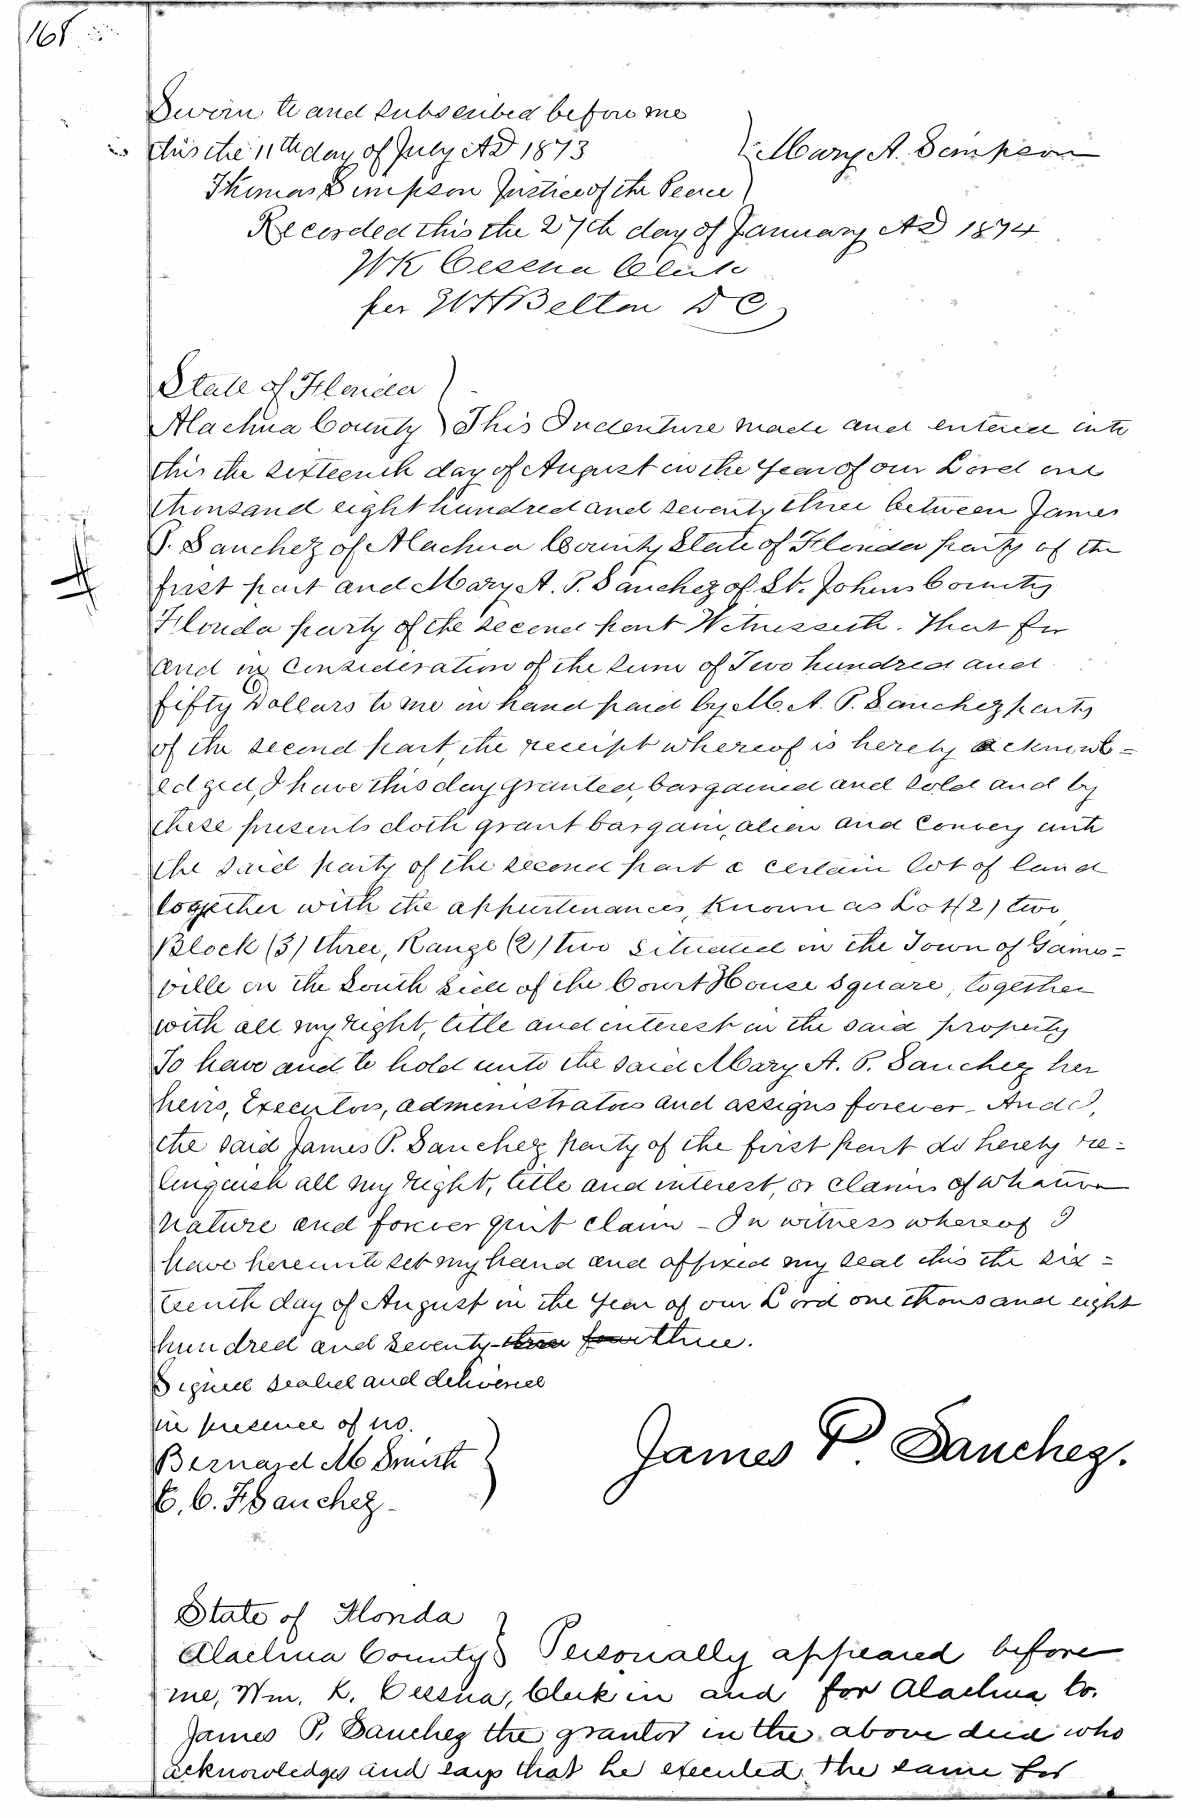 168
Sworn to and subscribed before me
this the 11th day of July AD 1873 } Mary A. Simpson
Thomas Simpson Justice of the Peace
Recorded this the 27th day of January AD 1874
WK Cessna Clerk
per WH Belton DC
State of Florida )
Alachua County ) This Indenture made and entered into
this the sixteenth day of August in the Year of our Lord one
thousand eight hundred and seventy three between James
P. Sanchez of Alachua County State of Florida party of the
first part and Mary A. P. Sanchez of St. Johns County
Florida party of the second part Witnesseth. That for
and in consideration of the sum of Two hundred and
fifty Dollars to me in hand paid by M. A. P. Sanchez party
of the second part, the receipt whereof is hereby acknowl=
edged, I have this day granted, bargained and sold and by
these presents doth grant bargain, alien and convey unto
the said party of the second part a certain lot of land
together with the appurtenances, known as Lot (2) two,
Block (3) three, Range (2) two situated in the Town of Gaines=
ville on the South side of the Court House square, together
with all my right, title and interest in the said property
To have and to hold unto the said Mary A. P. Sanchez her
heirs, Executors, administrators and assigns forever - And I,
the said James P. Sanchez party of the first part do hereby re=
linquish all my right, title and interest, or claims of whatever
nature and forever quit claim - In witness whereof I
have hereunto set my hand and affixed my seal this the six=
teenth day of August in the Year of our Lord one thousand eight
hundred and seventy-three four three.
Signed sealed and delivered
in presence of us.
Bernard M Smith
E. C. F Sanchez -
James P. Sanchez.
State of Florida
Alachua County } Personally appeared before
me, Wm. K. Cessna, Clerk in and for Alachua Co.
James P. Sanchez the grantor in the above deed who
acknowledges and says that he executed the same for